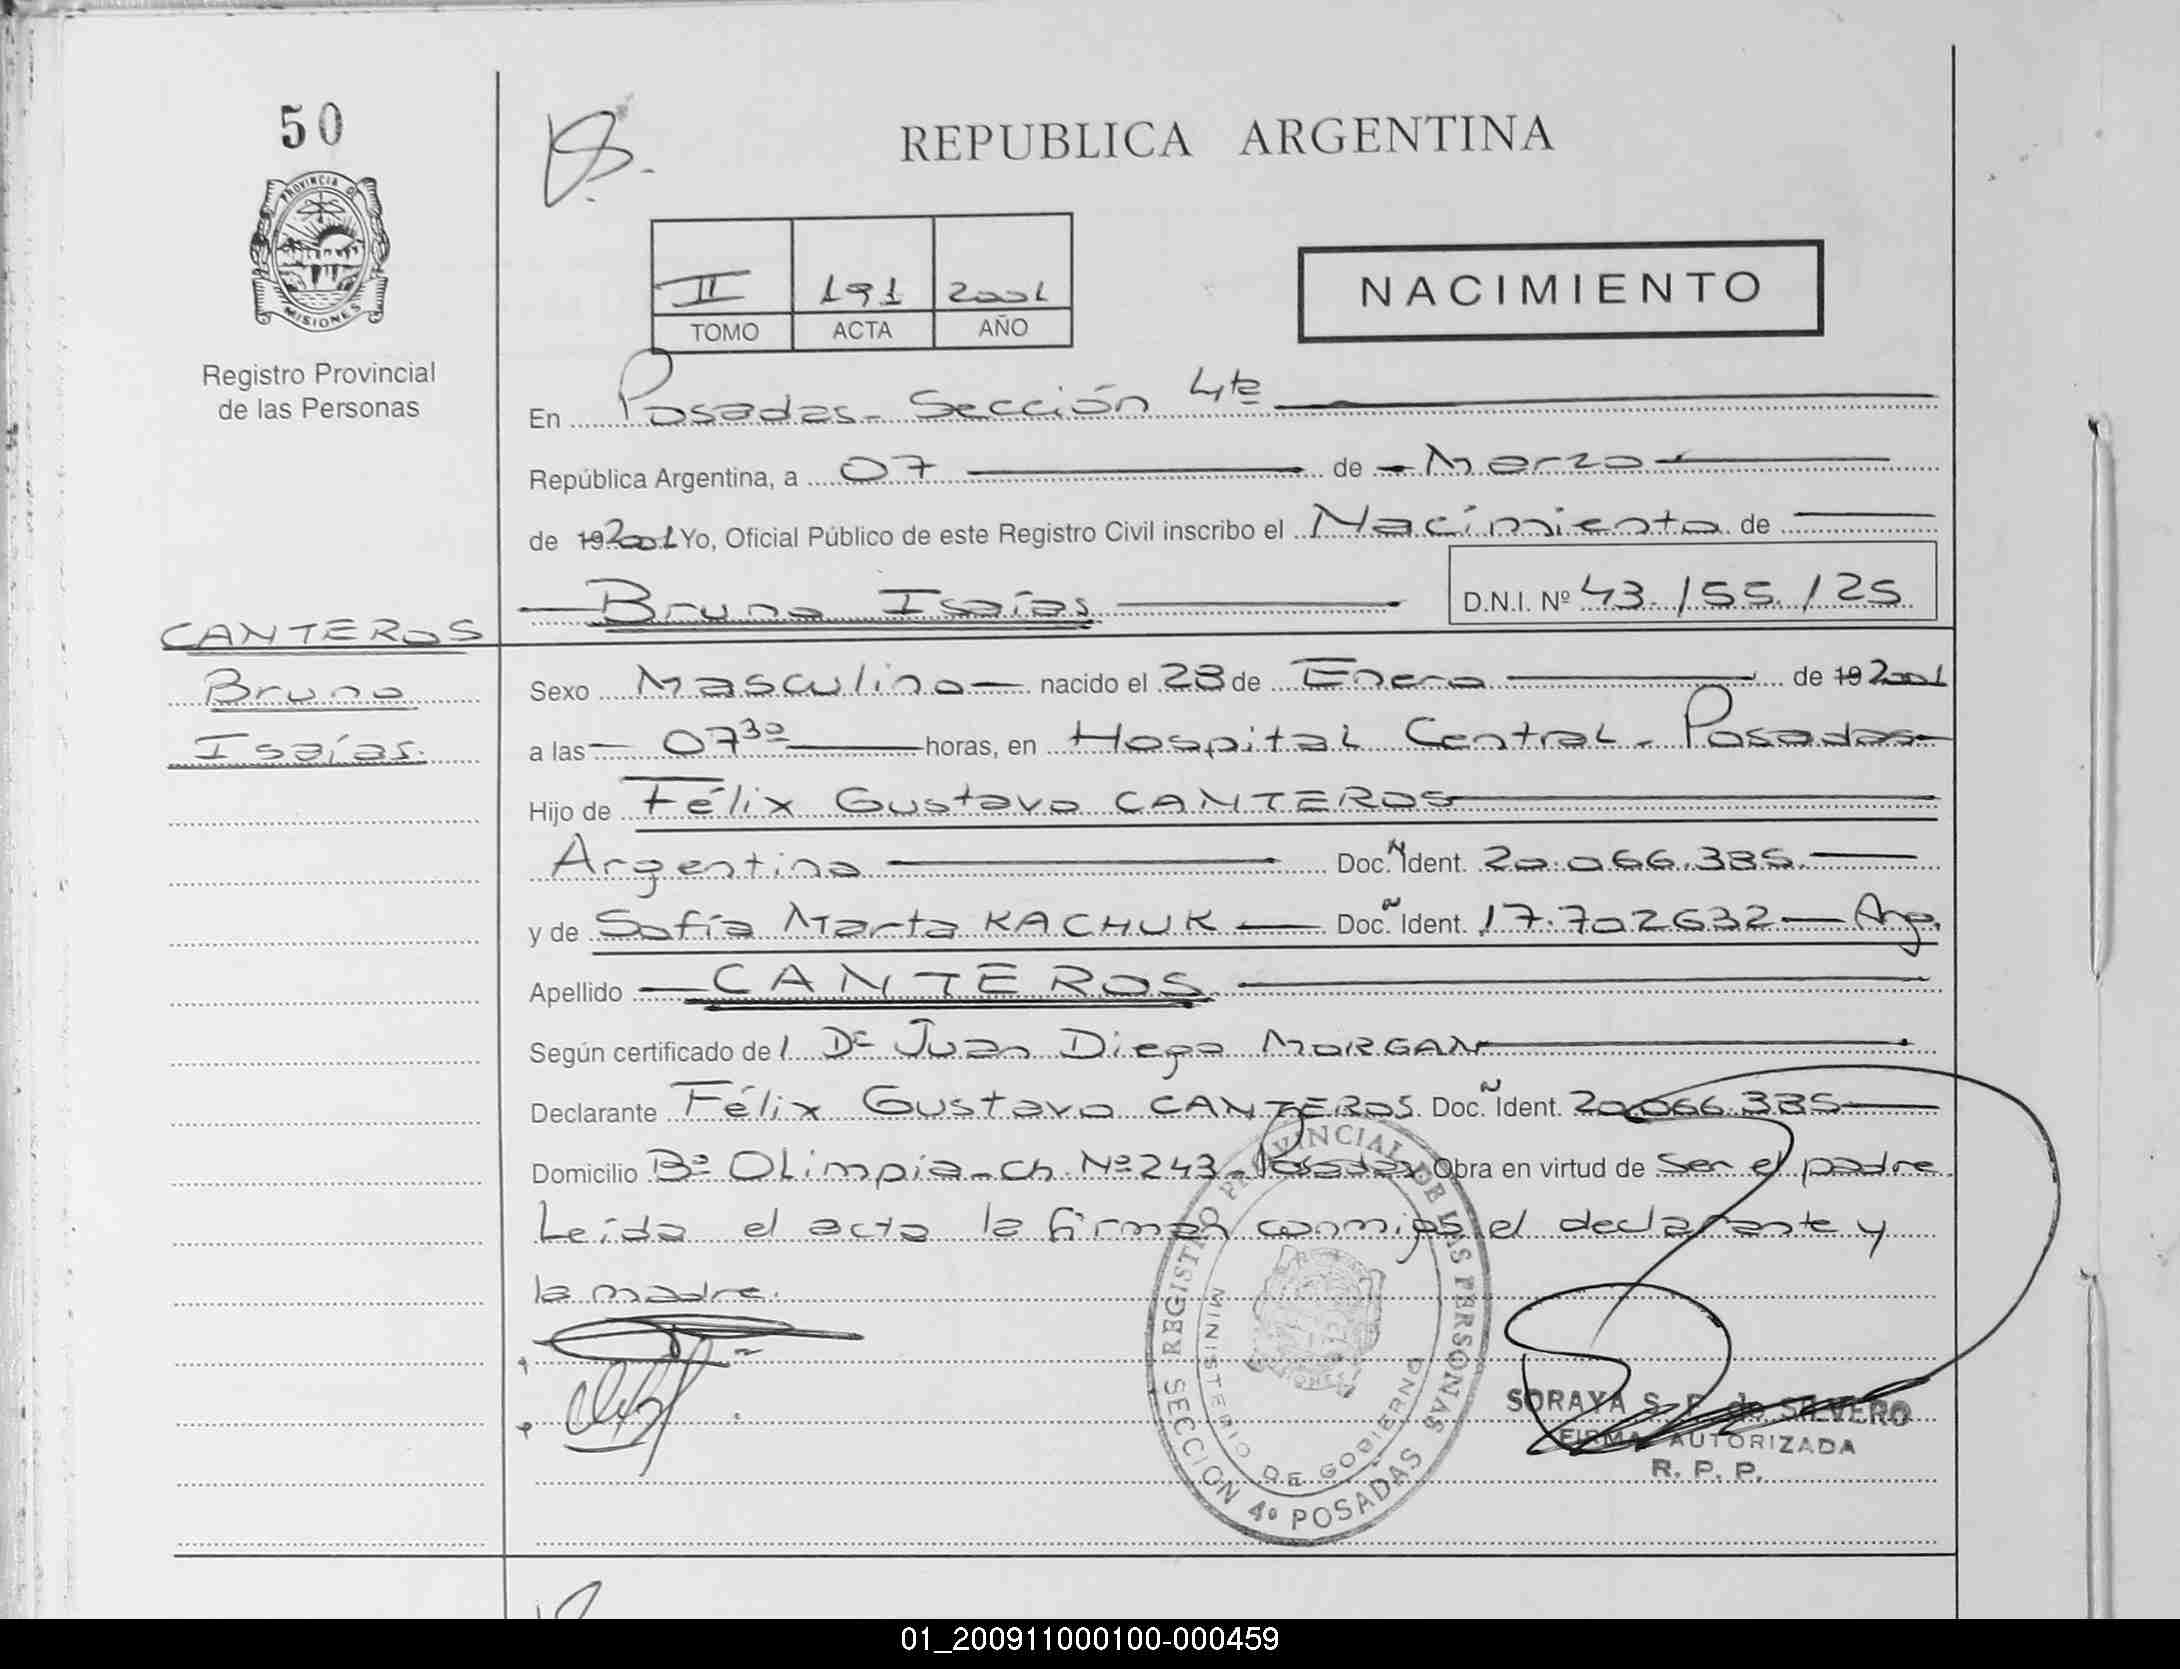 50
REPUBLICA ARGENTINA
PROVINCIA DE
MISIONES
Registro Provincial
de las Personas
II 191 2001
TOMO ACTA AÑO
NACIMIENTO
En Posadas - Sección 4ta
República Argentina, a 07 de Marzo
de 19 2001 Yo, Oficial Público de este Registro Civil inscribo el Nacimiento de
Bruno Isaías D.N.I. Nº 43./55./25
CANTEROS
Bruno
Isaías.
Sexo Masculino nacido el 28 de Enero de 19 2001
a las 07 30 horas, en Hospital Central - Posadas
Hijo de Félix Gustavo CANTEROS
Argentino Doc. Nº Ident. 20.066.385.
y de Sofía Marta KACHUK Doc. Ident. 17.702632 Arg.
Apellido CANTEROS
Según certificado del Dr Juan Diego MORGAN
Declarante Félix Gustavo CANTEROS. Doc. Ident. 20.066.385
Domicilio Bº Olimpia - Ch. Nº 243 - Posadas Obra en virtud de ser el padre.
Leída el acta la firman conmigo el declarante y
la madre.
REGISTRO PROVINCIAL DE LAS PERSONAS
MINISTERIO DE GOBIERNO
SECCION 4º POSADAS
SORAYA S. de SILVERO
FIRMA AUTORIZADA
R. P. P.
01_200911000100-000459